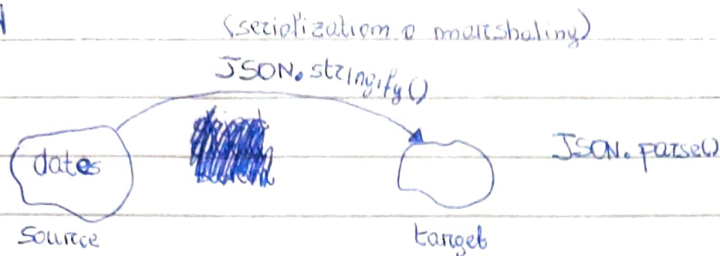 (seriolization o marshaling)
JSON.stringify()
dates
JSON.parse()
source
target